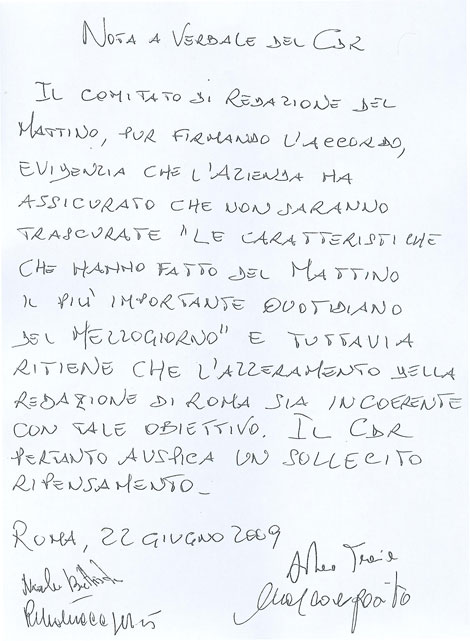 NOTA A VERBALE DEL CDR
IL COMITATO DI REDAZIONE DEL
MATTINO, PUR FIRMANDO L'ACCORDO,
EVIDENZIA CHE L'AZIENDA HA
ASSICURATO CHE NON SARANNO
TRASCURATE "LE CARATTERISTICHE
CHE HANNO FATTO DEL MATTINO
IL PIÙ IMPORTANTE QUOTIDIANO
DEL MEZZOGIORNO" E TUTTAVIA
RITIENE CHE L'AZZERAMENTO DELLA
REDAZIONE DI ROMA SIA INCOERENTE
CON TALE OBIETTIVO. IL CDR
PERTANTO AUSPICA UN SOLLECITO
RIPENSAMENTO_
ROMA, 22 GIUGNO 2009